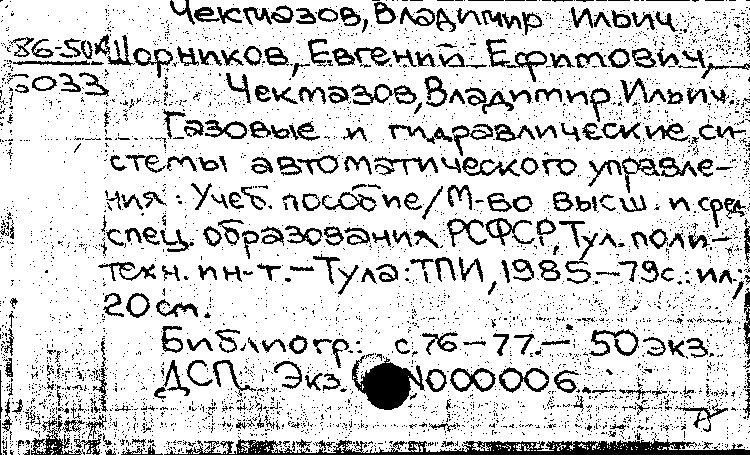 Чекмазов, Владимир Ильич
86-50к Шорников, Евгений Ефимович,
6033 Чекмазов, Владимир Ильич.
Газовые и гидравлические си-
стемы автоматического управле-
ния : Учеб. пособие / М-во высш. и сред.
спец. образования РСФСР, Тул. поли-
техн. ин-т. — Тула : ТПИ, 1985. — 79с. : ил;
20 см.
Библиогр.: с. 76 — 77. — 50 экз.
ДСП. Экз. N000006.